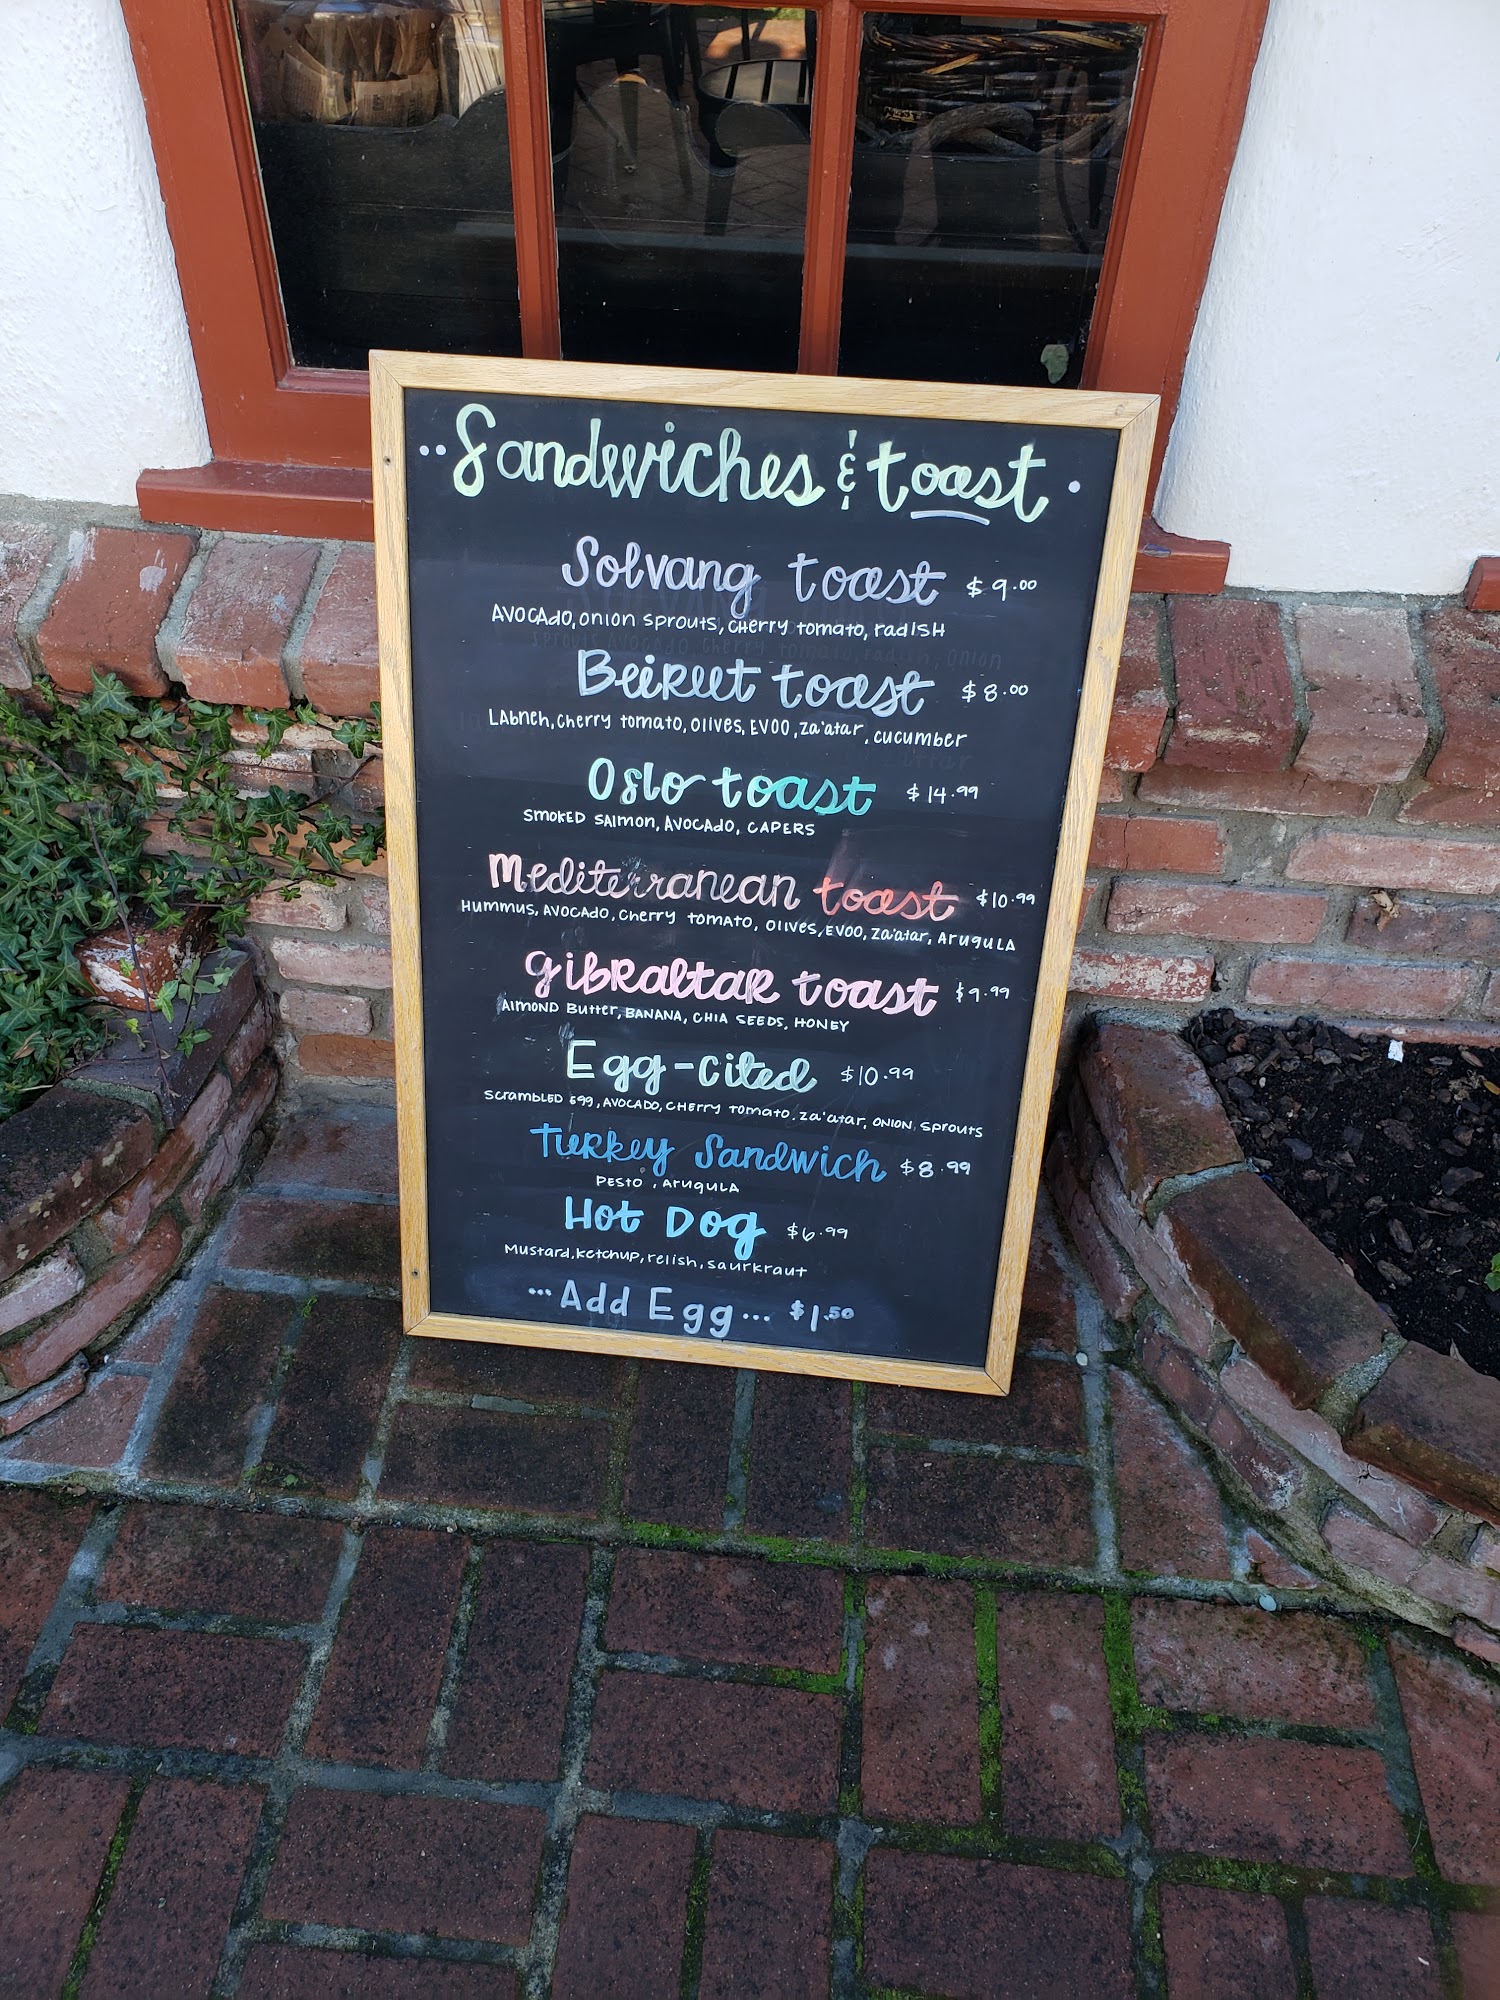 Sandwiches & toast
Solvang toast $9.00
Avocado, onion sprouts, cherry tomato, radish
Beirut toast $8.00
Labneh, cherry tomato, olives, EVOO, za'atar, cucumber
Oslo toast $14.99
Smoked salmon, avocado, capers
Mediterranean toast $10.99
Hummus, avocado, cherry tomato, olives, EVOO, za'atar, arugula
Gibraltar toast $9.99
Almond butter, banana, chia seeds, honey
Egg-cited $10.99
Scrambled egg, avocado, cherry tomato, za'atar, onion sprouts
Turkey Sandwich $8.99
Pesto, arugula
Hot Dog $6.99
Mustard, ketchup, relish, saurkraut
...Add Egg... $1.50